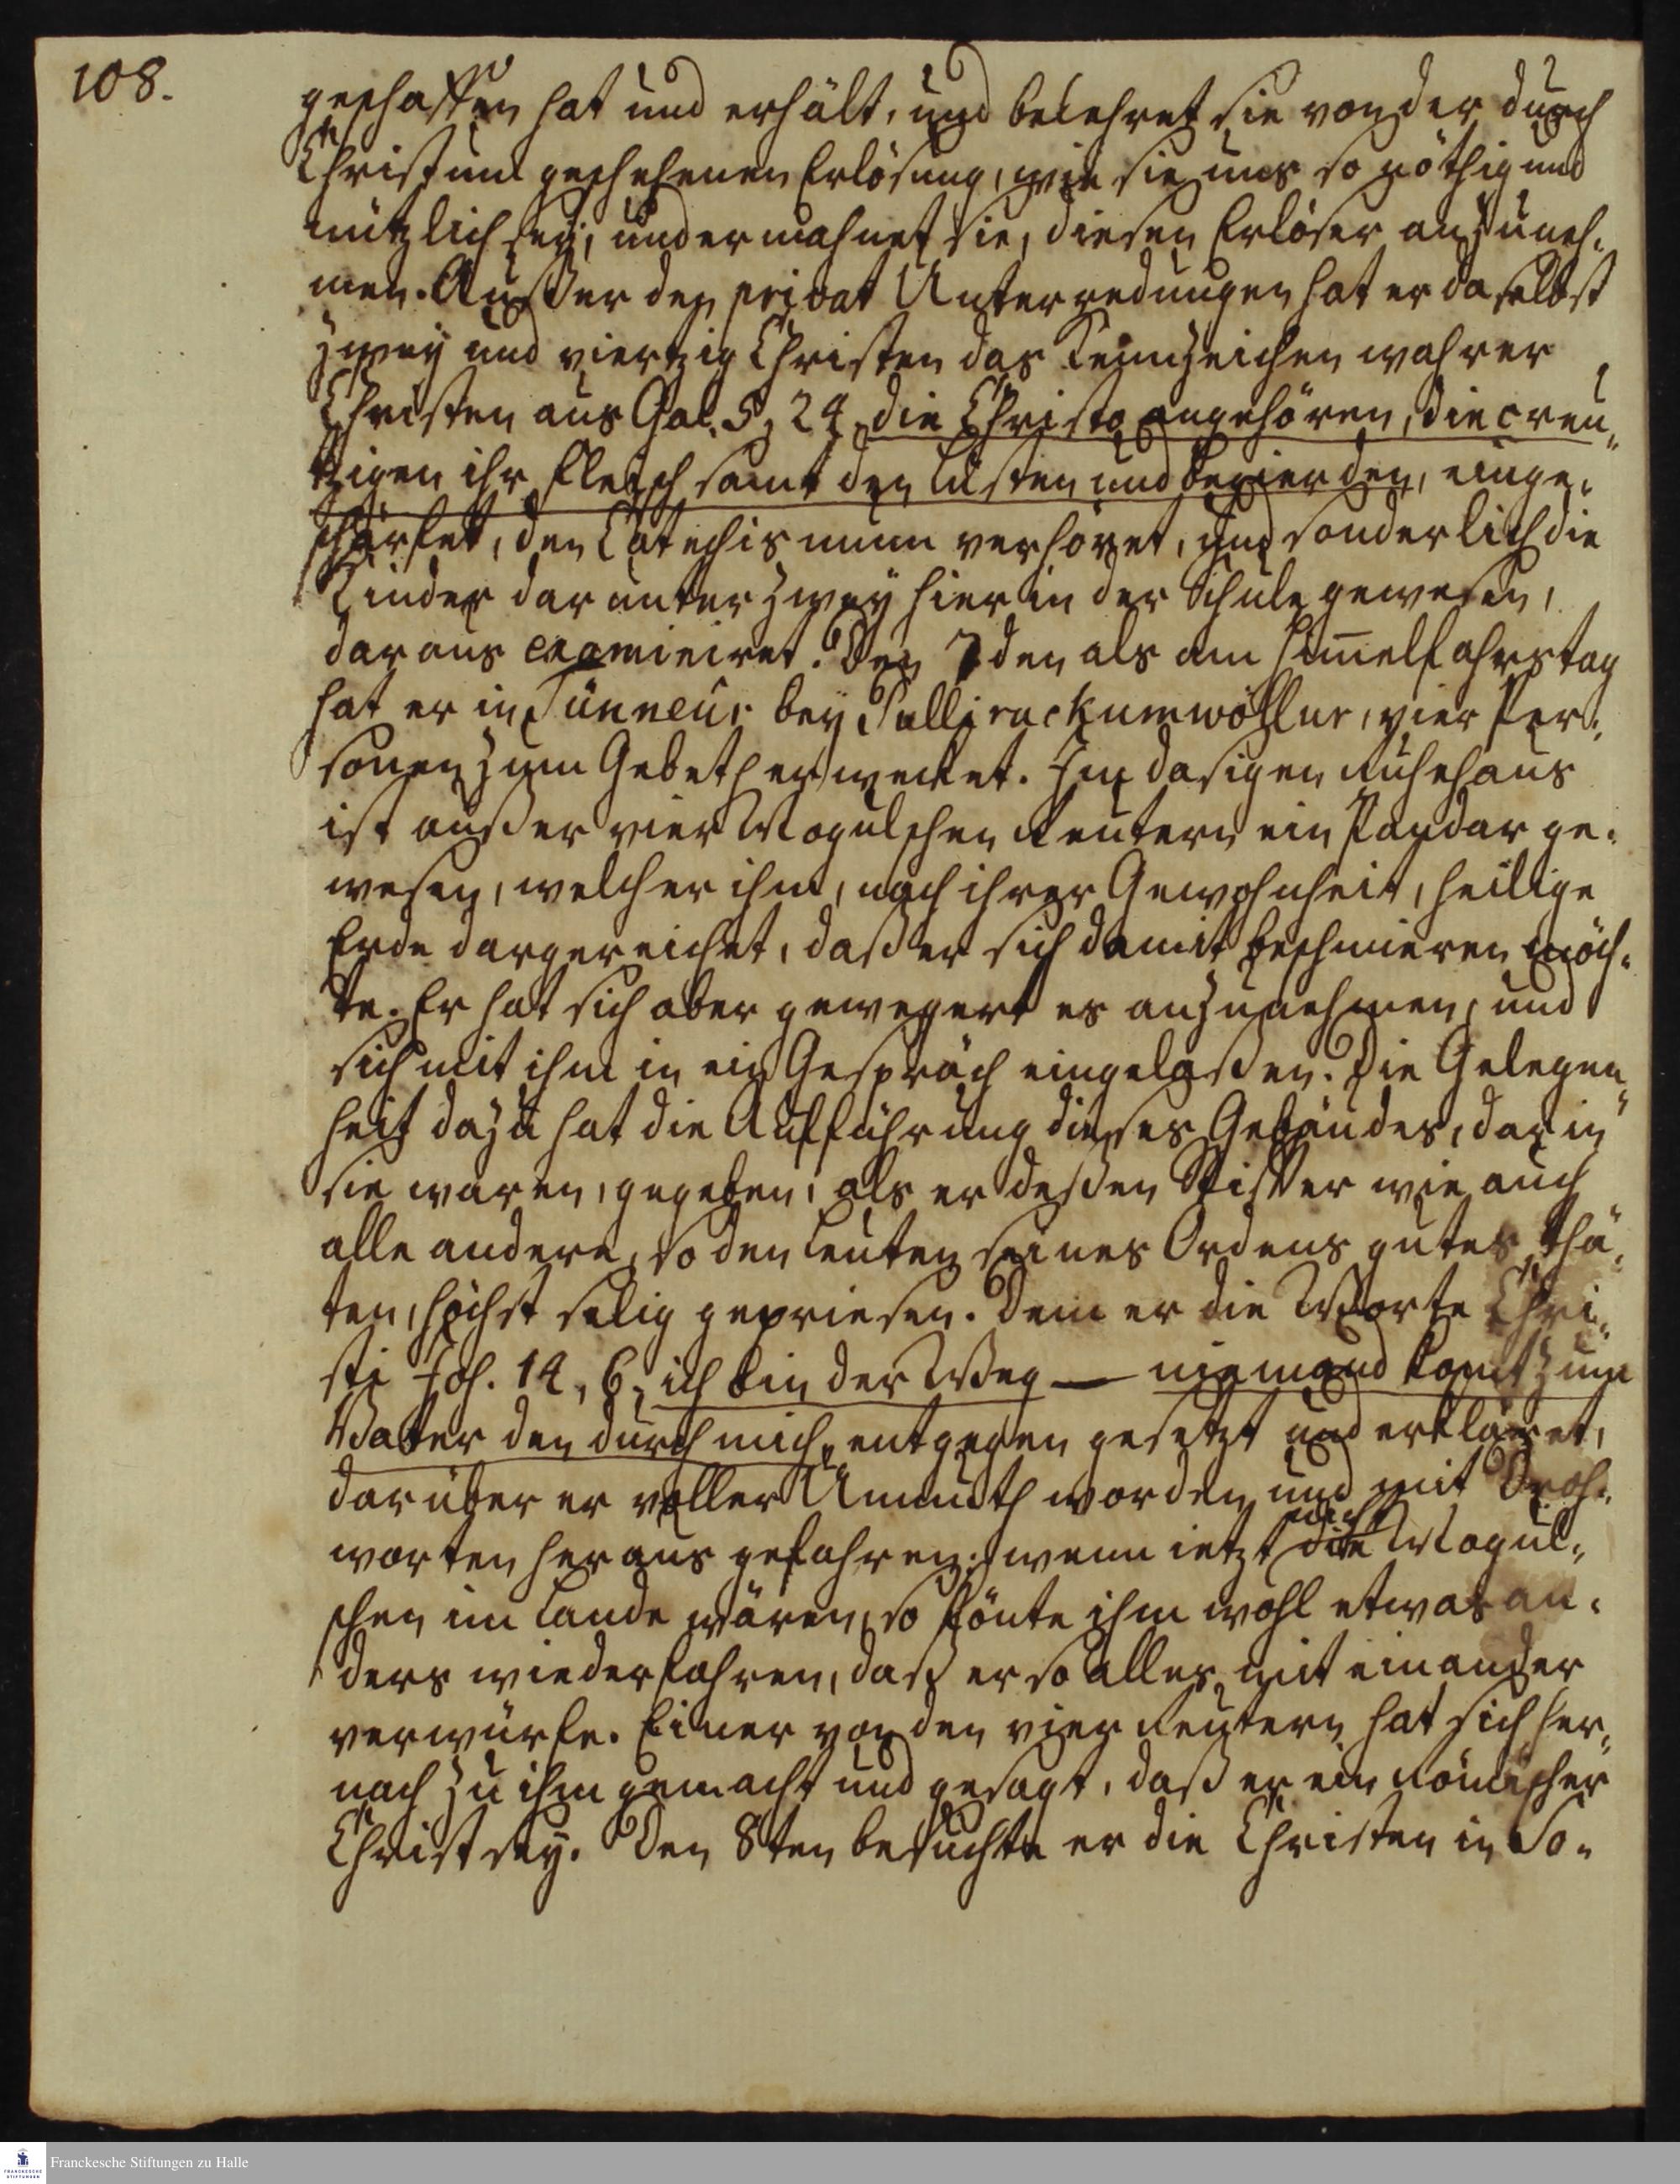 108.
geschaffen hat und erhält, und belehret sie von der durch
Christum geschehenen Erlösung, wie sie uns so nöthig und
nützlich sey, und ermahnet sie, diesen Erlöser anzuneh-
men. Außer den privat Unterredungen hat er daselbst
zwey und viertzig Christen das Kennzeichen wahrer
Christen aus Gal. 5, 24 die Christo angehören, die creu-
tzigen ihr Fleisch samt den Lüsten und Begierden, einge-
schärfet, den Catechismum verhöret, und sonderlich die
Kinder darunter zwey hier in der Schule gewesen,
daraus examiniret. Den 7den als am Himelfahrstag
hat er in Tünneûr bey Pullirackumwöhlur, vier Per-
sonen zum Gebeth erwecket. Im dasigen Ruhehaus
ist außer vier Mogulschen Reutern ein Pandar ge-
wesen, welcher ihm, nach ihrer Gewohnheit, heilige
Erde dargereichet, daß er sich damit beschmieren möch-
te. Er hat sich aber gewegert es anzunehmen, und
sich mit ihm in ein Gespräch eingelaßen. Die Gelegen-
heit dazu hat die Aufführung dieses Gebäudes, darin
sie waren, gegeben, als er deßen Stifter wie auch
alle andere, so den Leuten seines Ordens gutes thä-
ten, höchst selig gepriesen. Dem er die Worte Chri-
sti Joh. 14, 6, ich bin der Weg — niemand komt zum
Vater den durch mich, entgegen gesetzt und erkläret,
darüber er voller Unmuth worden und mit Droh-
worten heraus gefahren: wenn ietzt nicht die Mogul-
schen im Lande wären, so könte ihm wohl etwas an-
ders wiederfahren, daß er so alles mit einander
verwürfe. Einer von den vier Reutern hat sich her-
nach zu ihm gemacht und gesagt, daß er ein Römischer
Christ sey. Den 8ten besuchte er die Christen in So-
Franckesche Stiftungen zu Halle